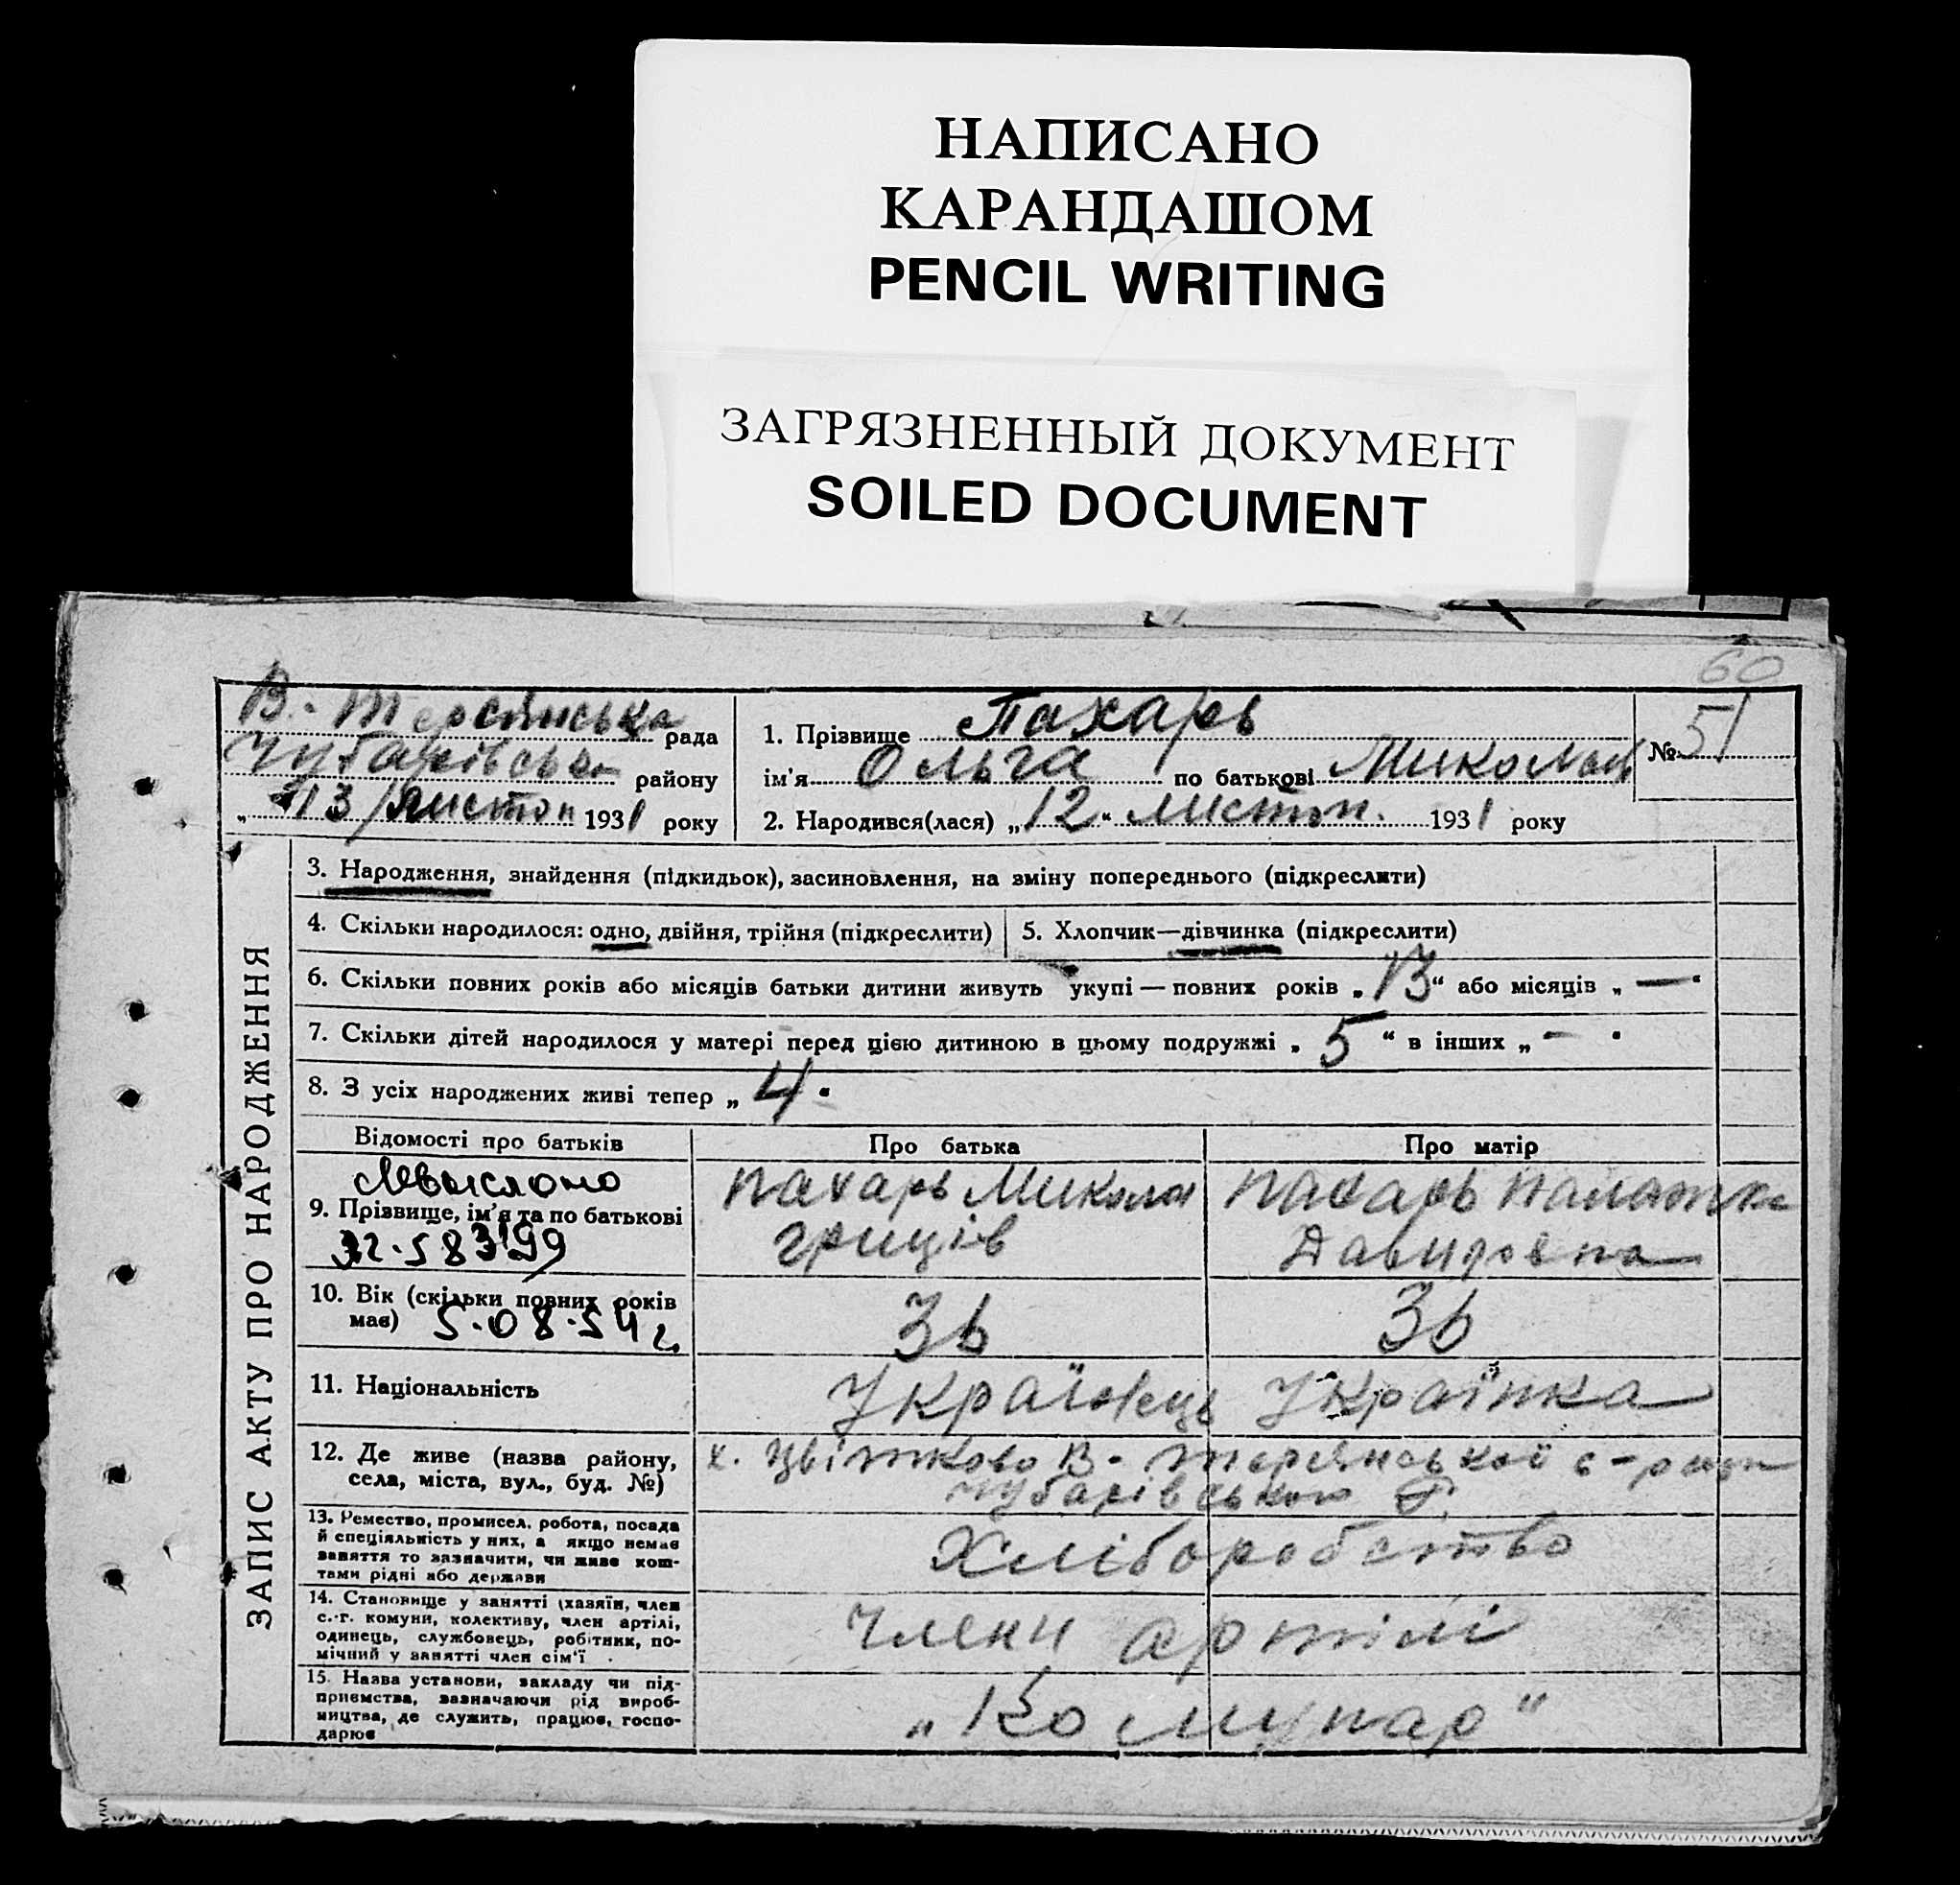 НАПИСАНО
КАРАНДАШОМ
PENCIL WRITING
ЗАГРЯЗНЕННЫЙ ДОКУМЕНТ
SOILED DOCUMENT
60
В.-Терсянська рада
Чубарівськ району
„13/листоп 1931 року
1. Прізвище Пахарь
ім'я Ольга по батькові Микол
2. Народився(лася) „12“ листоп. 1931 року
№ 51
ЗАПИС АКТУ ПРО НАРОДЖЕННЯ
3. Народження, знайдення (підкидьок), засиновлення, на зміну попереднього (підкреслити)
4. Скільки народилося: одно, двійня, трійня (підкреслити)
5. Хлопчик—дівчинка (підкреслити)
6. Скільки повних років або місяців батьки дитини живуть укупі — повних років „13“ або місяців „—“
7. Скільки дітей народилося у матері перед цією дитиною в цьому подружжі „5“ в інших „-“
8. З усіх народжених живі тепер „4.
Відомості про батьків
Про батька
Про матір
9. Прізвище, ім'я та по батькові
Пахарь Микола
Гриців
Пахарь Палажка
Давидовна
10. Вік (скільки повних років
має)
5.08.54 г.
36
36
11. Національність
Українець
Українка
12. Де живе (назва району,
села, міста, вул., буд. №)
х. Цвітково В-Терсянської с-ради
Чубарівського Р.
13. Ремество, промисел, робота, посада
й спеціяльність у них, а якщо немає
заняття то зазначити, чи живе кош-
тами рідні або держави
Хліборобство
14. Становище у занятті (хазяїн, член
с.-г. комуни, колективу, член артілі,
одинець, службовець, робітник, по-
мічний у занятті член сім'ї
Члени артілі
15. Назва установи, закладу чи під-
приємства, зазначаючи рід вироб-
ництва, де служить, працює, госпо-
дарює
„Комунар“